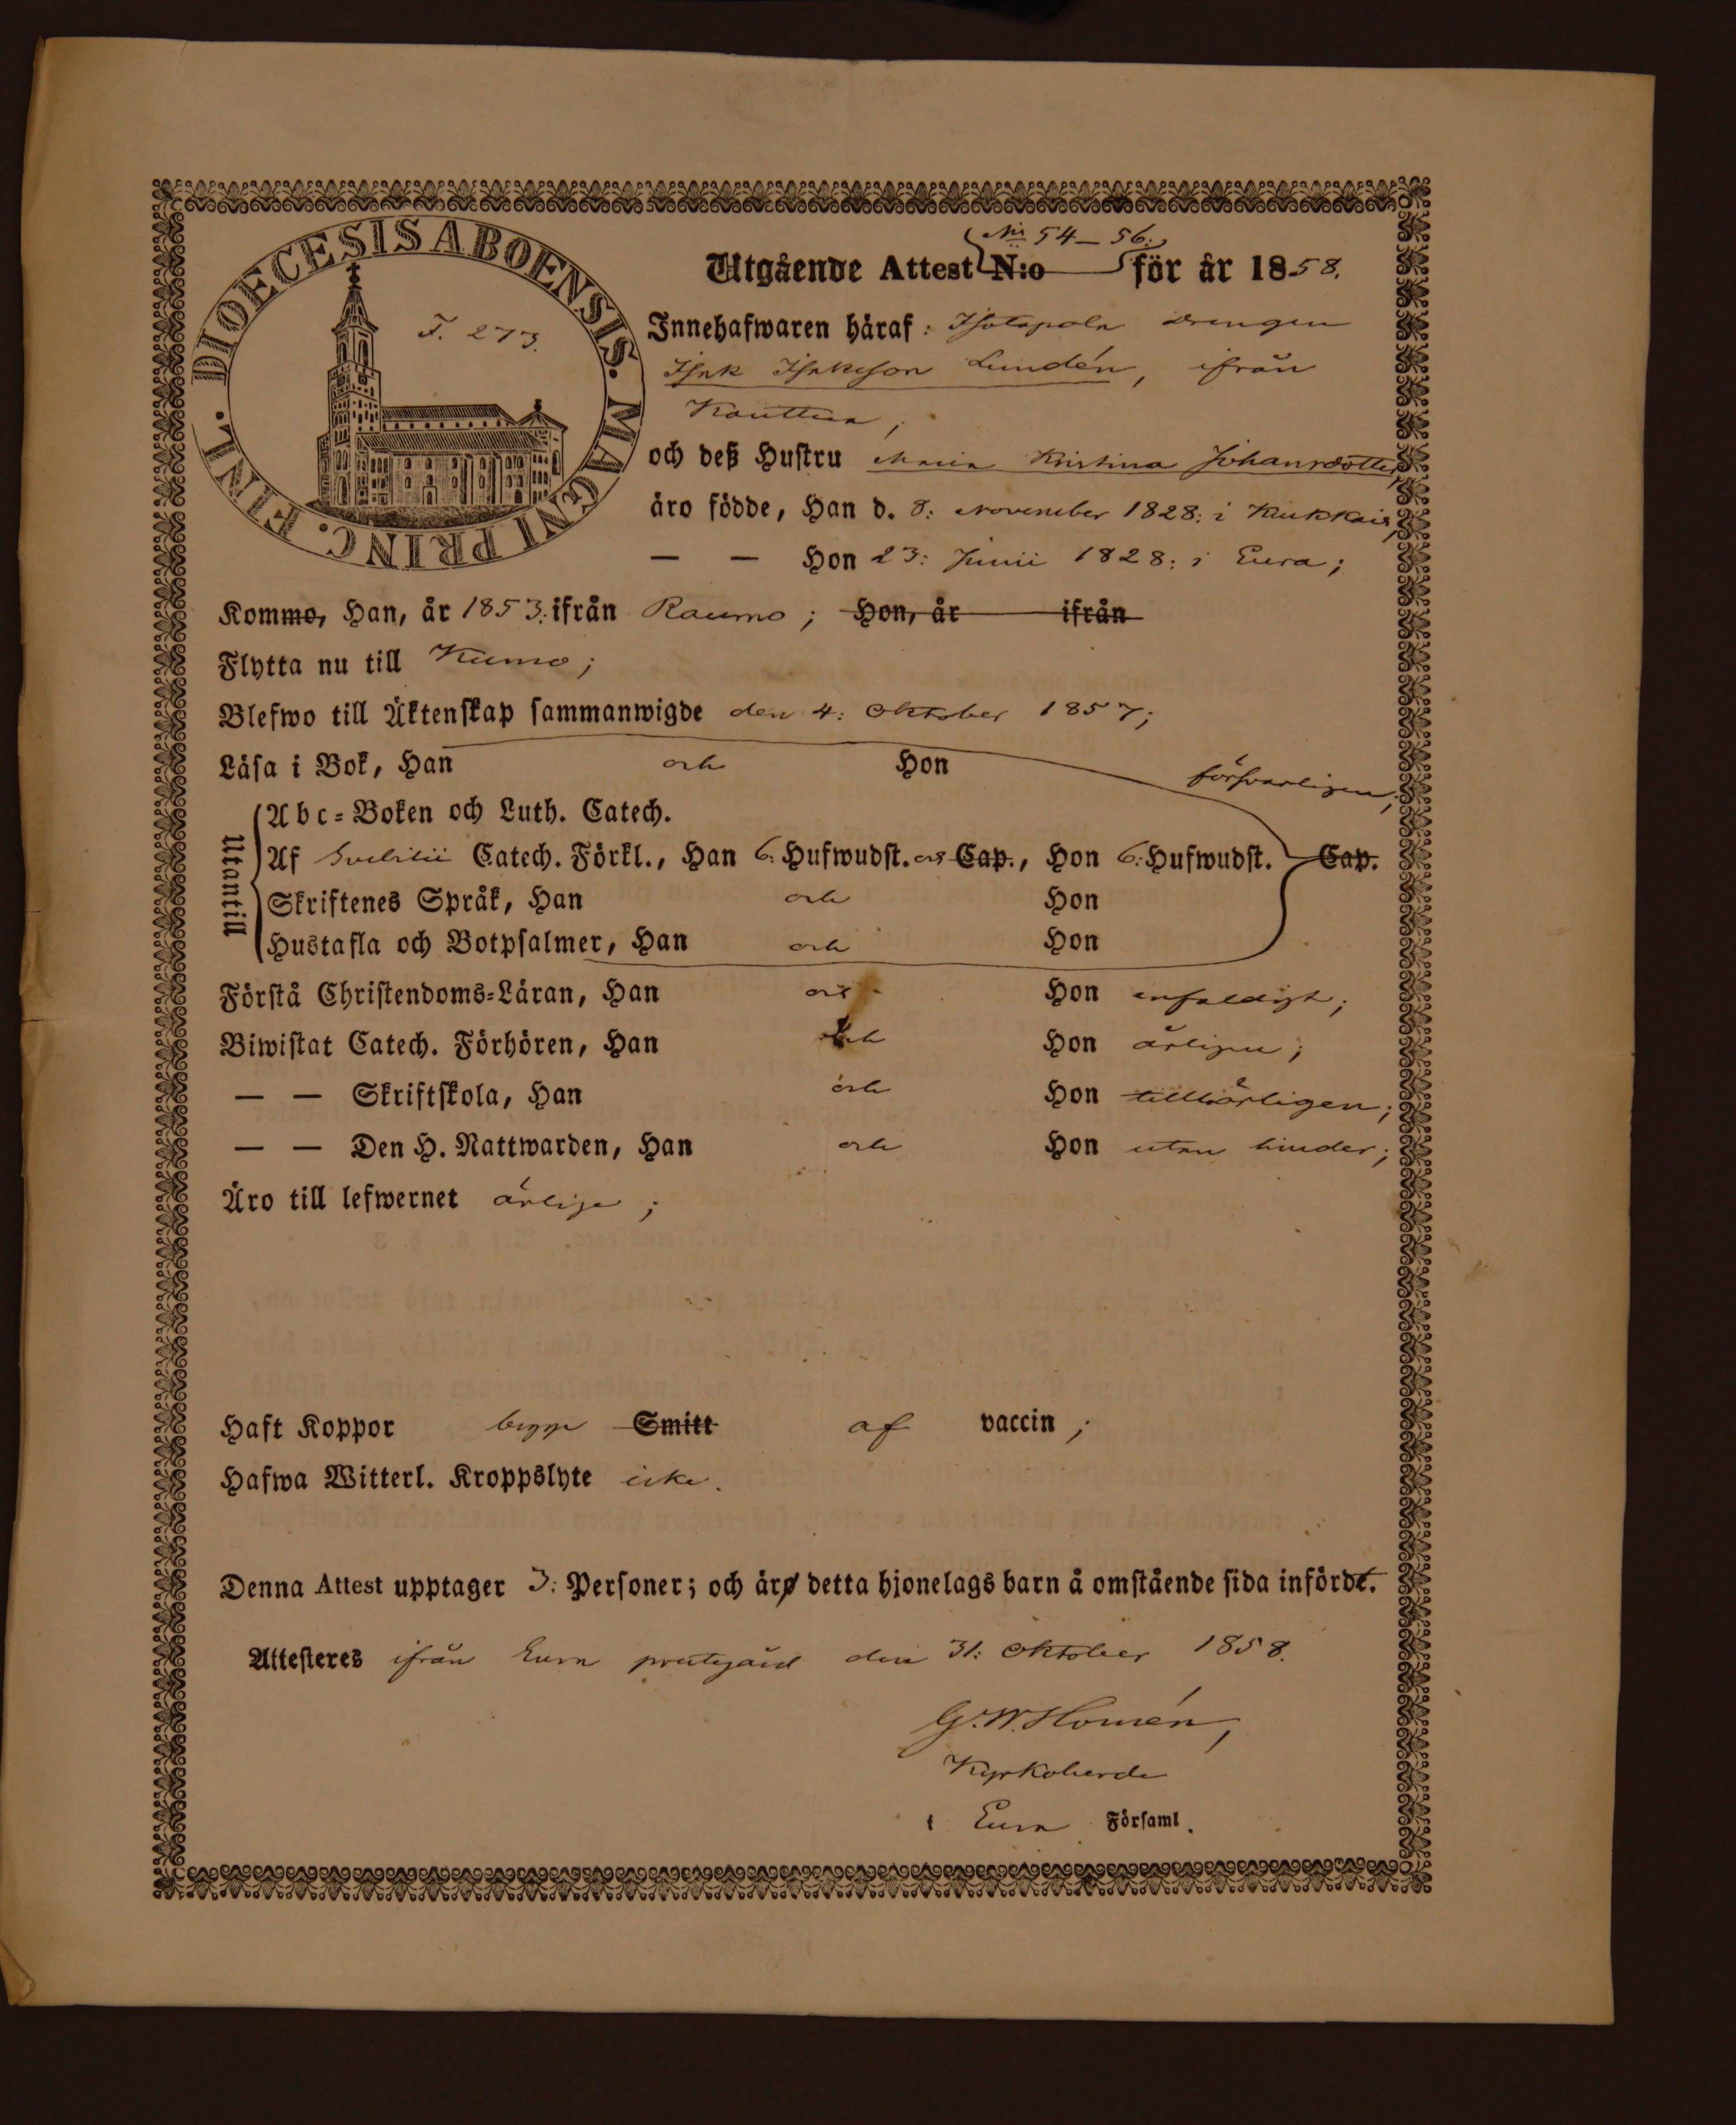 DIOECESIS ABOENSIS. MAGNI PRINC. FINL.
F. 273.
N:is 54–56:
Utgående Attest N:o för år 1858.
Innehafwaren häraf: drengen
Isak Isaksson Lundén, ifrån
Kauttua,
och deß Hustru Maria Kristina Johansdotter,
äro födde, Han d. 8: November 1828: i Kiukkais,
— — Hon 23: Junii 1828: i Eura;
Kommo, Han, år 1853: ifrån Raumo; Hon, år ifrån
Flytta nu till Kumo;
Blefwo till Äktenskap sammanwigde den 4: Oktober 1857;
Läsa i Bok, Han och Hon försvarligen;
Utantill
Abc-Boken och Luth. Catech.
Af Svebilii Catech. Förkl., Han 6: Hufwudst. och Cap., Hon 6: Hufwudst. Cap.
Skriftenes Språk, Han och Hon
Hustafla och Botpsalmer, Han och Hon
Förstå Christendoms-Läran, Han och Hon enfaldigt;
Biwistat Catech. Förhören, Han och Hon årligen;
— — Skriftskola, Han och Hon tillbörligen;
— — Den H. Nattwarden, Han och Hon utan hinder;
Äro till lefwernet ärlige;
Haft Koppor begge Smitt af vaccin;
Hafwa Witterl. Kroppslyte icke.
Denna Attest upptager 3: Personer; och äro detta hjonelags barn å omstående sida infördt.
Attesteres ifrån Eura prestgård den 31: Oktober 1858.
G. W. Homén,
Kyrkoherde
i Eura Församl.